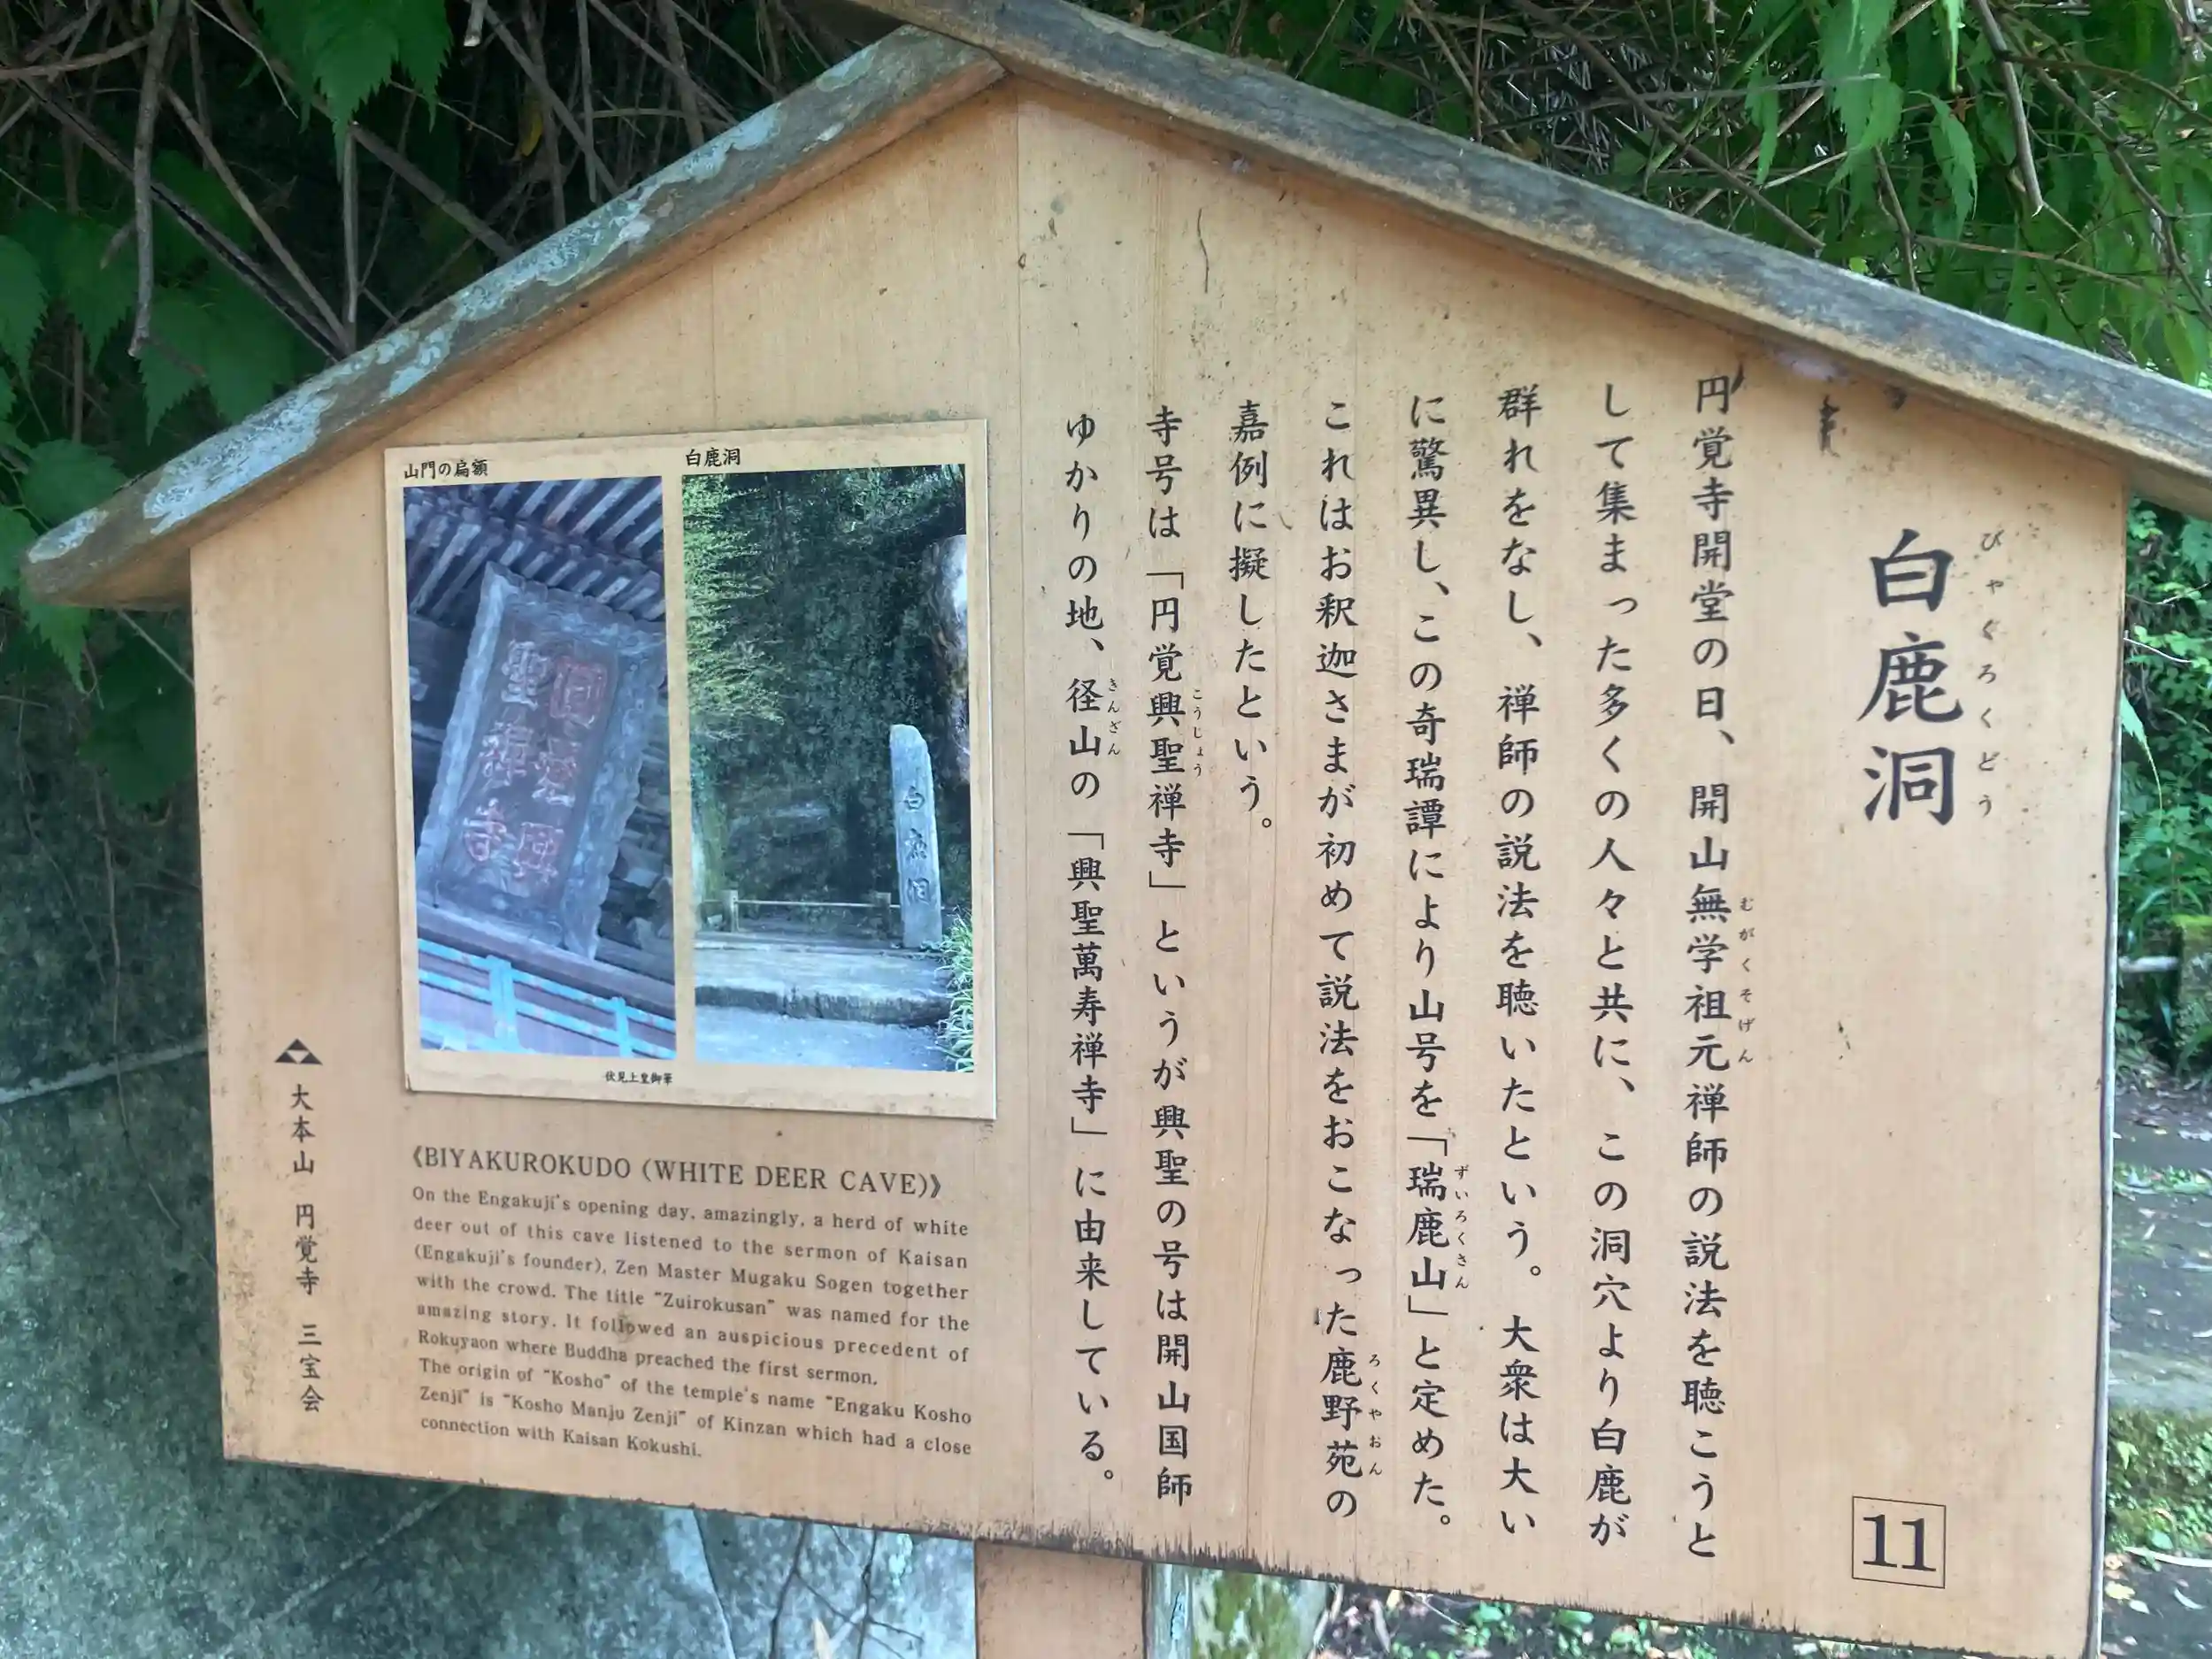 白鹿洞
びゃくろくどう
円覚寺開堂の日、開山無学祖元禅師の説法を聴こうと
むがくそげん
して集まった多くの人々と共に、この洞穴より白鹿が
群れをなし、禅師の説法を聴いたという。大衆は大い
に驚異し、この奇瑞譚により山号を「瑞鹿山」と定めた。
ずいろくさん
これはお釈迦さまが初めて説法をおこなった鹿野苑の
ろくやおん
嘉例に擬したという。
寺号は「円覚興聖禅寺」というが興聖の号は開山国師
こうしょう
ゆかりの地、径山の「興聖萬寿禅寺」に由来している。
きんざん
11
白鹿洞
白鹿洞
山門の扁額
円覚興
聖禅寺
伏見上皇御筆
《BIYAKUROKUDO (WHITE DEER CAVE)》
On the Engakuji's opening day, amazingly, a herd of white
deer out of this cave listened to the sermon of Kaisan
(Engakuji's founder), Zen Master Mugaku Sogen together
with the crowd. The title "Zuirokusan" was named for the
amazing story. It followed an auspicious precedent of
Rokuyaon where Buddha preached the first sermon.
The origin of "Kosho" of the temple's name "Engaku Kosho
Zenji" is "Kosho Manju Zenji" of Kinzan which had a close
connection with Kaisan Kokushi.
大本山 円覚寺 三宝会